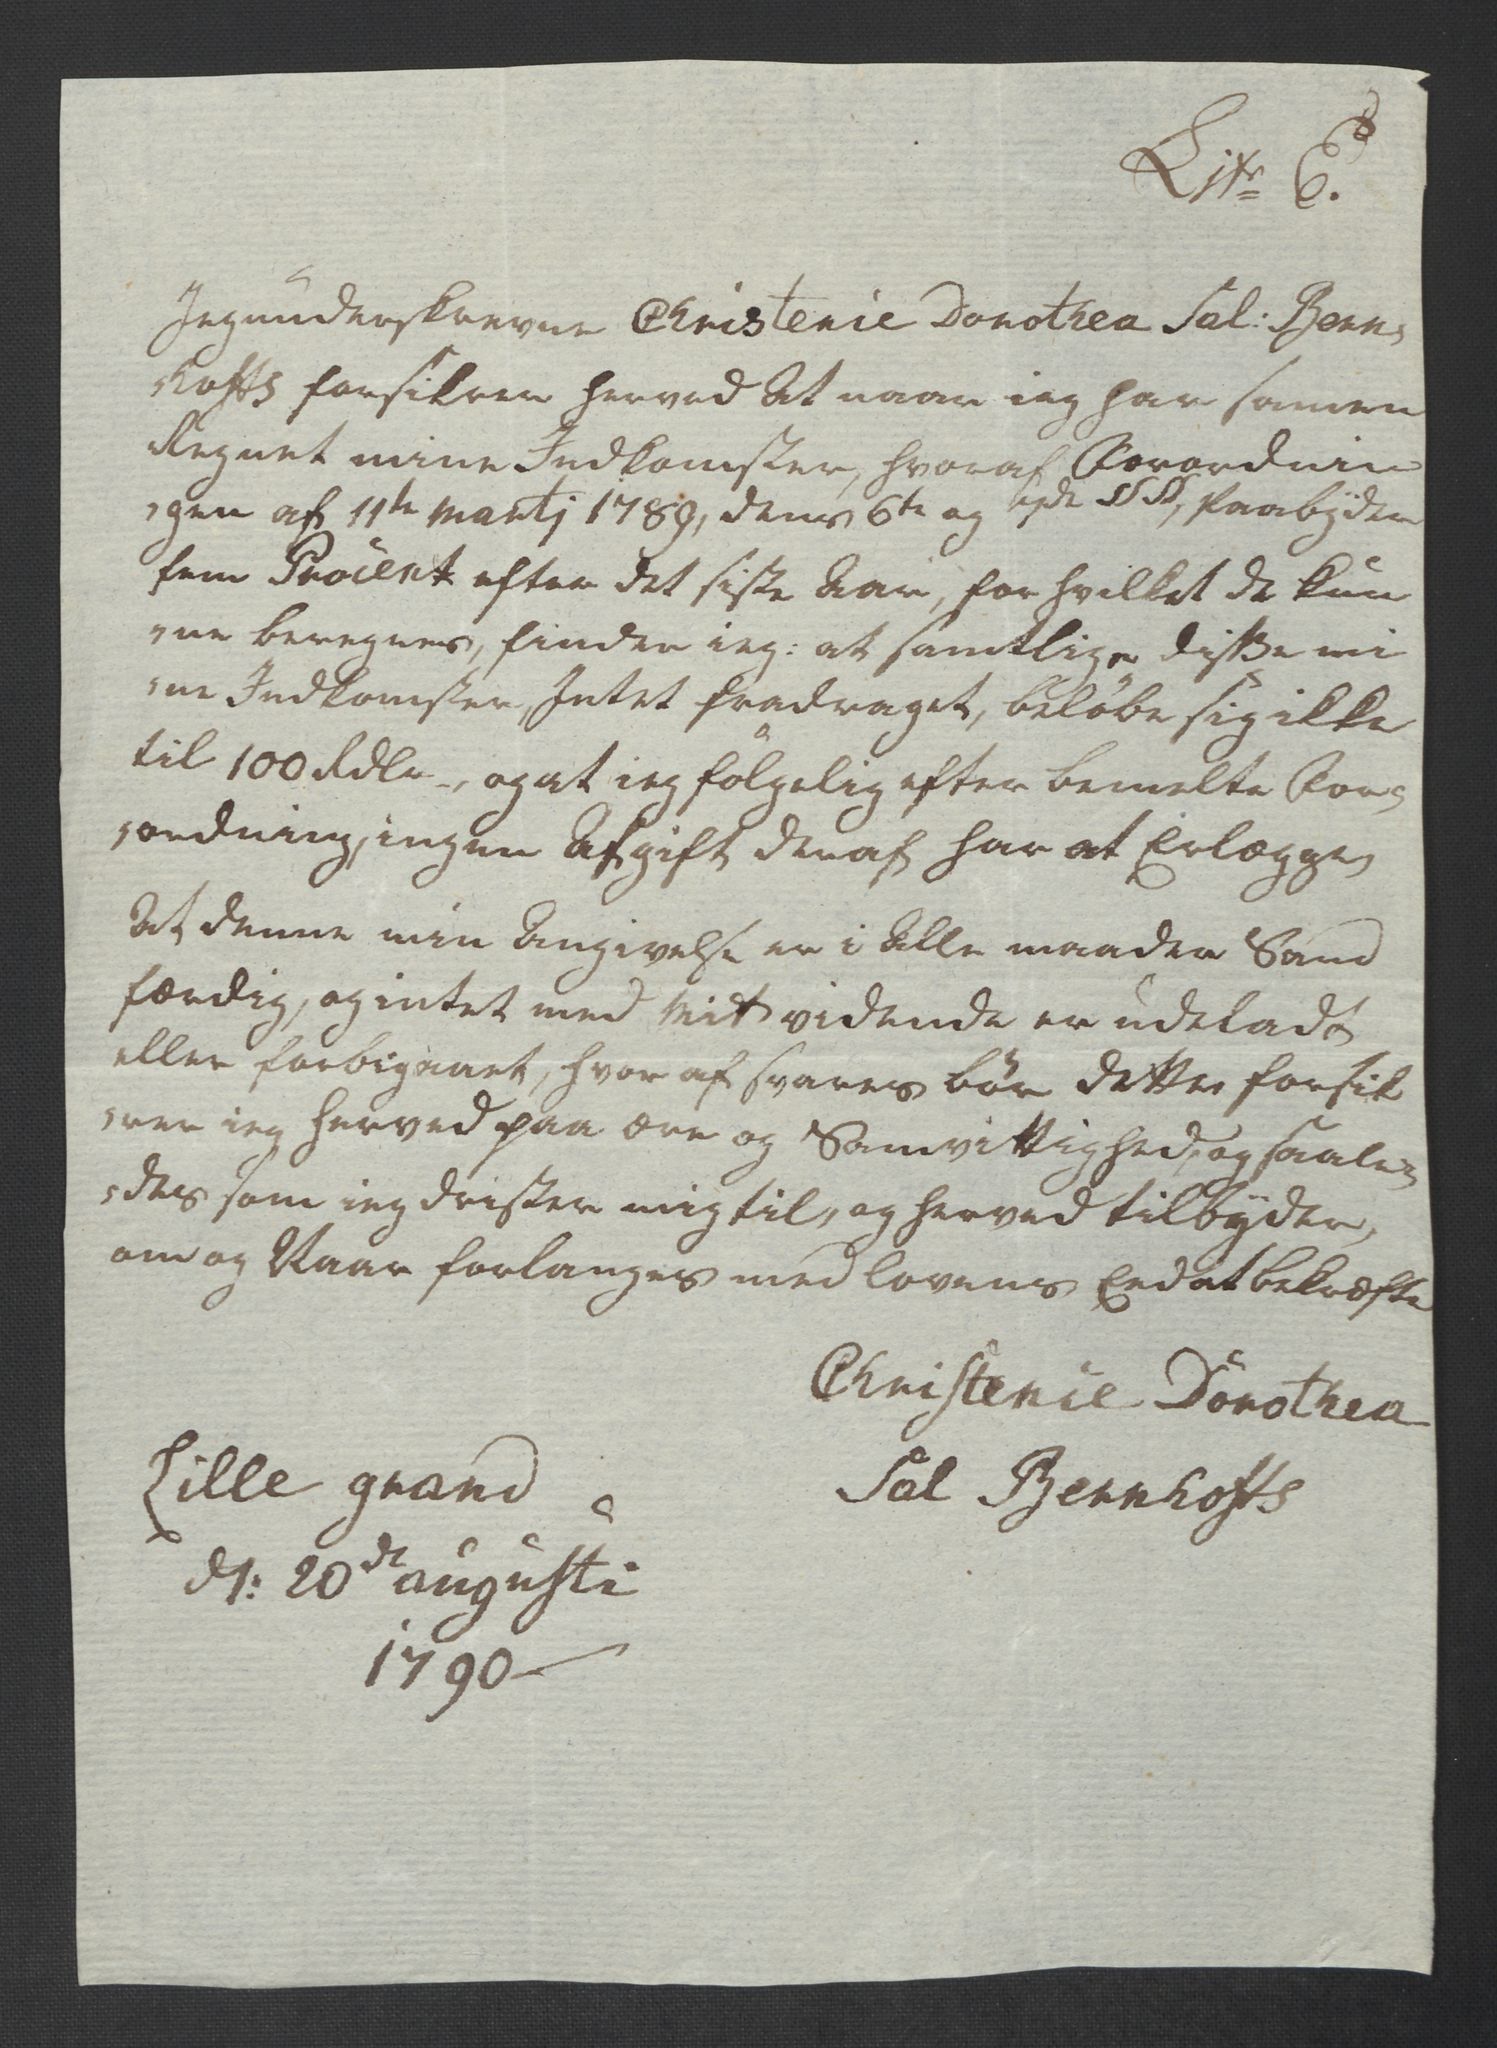 Litr C.
Jeg underskrevne Christenie Dorothea Sal: Bern-
-hofts forsikrer herved At naar ieg har samen
Regnet mine Indkomster, hvoraf Forordnin
-gen af 11te Martij 1789, dens 6te og §§, Paabÿder
fem Procent efter det siste Aar, for hvilket de kun
-ne beregnes, finder ieg: at samtlige disse mi
-ne Indkomster, Intet fradraget, beløbe sig ikke
til 100 Rdlr, og at ieg følgelig efter bemelte For-
-ordning, ingen Afgift deraf har at Erlægge,
At denne min Angivelse er i Alle maader Sand
færdig, og intet med Mit vidende er udeladt
eller forbigaaet, hvor af svares bör dette forsik
-rer ieg herved paa ære og Samvittighed, og saale-
-des som ieg drister mig til, og herved tilbÿder,
om og Naar forlanges med lovens Eed at bekræfte
Christenie Dorothea
Sal Bernhofts
Lille grand
d: 20de augusti
1790